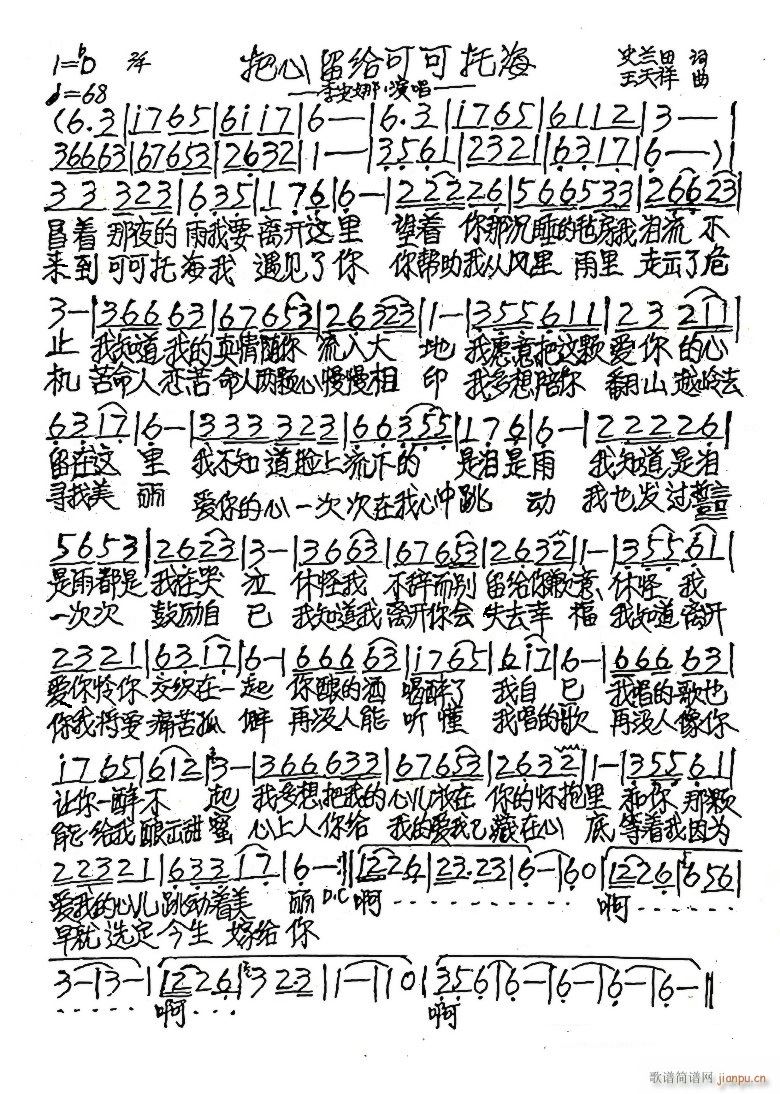 1=♭D 2/4 把心留给可可托海 史兰田 词
♩=68 ——李安娜·演唱—— 王天祥 曲
(6.3|i765|61i7|6——|6.3|i765|6112|3——|
36663|67653|2632|1——|3561|2321|6317|6——)|
33 323|635|176|6—|222226|566533|26623|
冒着 那夜的 雨我要 离开这里 望着 你那沉睡的毡房我泪流 不
来到 可可托海我 遇见了你 你帮助我从风里 雨里 走出了危
3—|366663|67653|26323|1—|355611|23211|
止 我知道我的真情随你 流入大 地 我愿意把这颗 爱你 的心
机 苦命人恋苦 命人两颗心慢慢相 印 我多想陪你 翻山 越岭去
6317|6—|333323|66355|176|6—|222226|
留在这 里 我不知 道脸上流下的 是泪是雨 我知道是泪
寻找美 丽 爱你的心一次次在我心中跳 动 我也发过誓言
5653|2623|3—|3663|67653|2632|1—|35561|
是雨都是 我在哭 泣 休怪我 不辞而别 留给你歉意 休怪 我
一次次 鼓励自 己 我知道我离开你会 失去幸 福 我知道离开
2321|6317|6—|66663|i765|6i7|6—|66663|
爱你怜你 交织在一起 你酿的酒 喝醉了 我自 己 我唱的歌也
你我将要 痛苦孤 僻 再没人能 听懂 我唱的歌 再没人像你
i765|612|3—|366633|67653|2632|1—|35561|
让你一醉不 起 我多想把我的心儿放在 你的怀抱里 和你 那颗
能给我酿出甜蜜 心上人你给 我的爱我已藏在心 底 等着我因为
22321|63317|6—:||1226|23.23|6—|60|1226|656|
爱我的心儿跳动着美 丽 D.C 啊········· 啊······
早就 选定今生 嫁给你
3—|3—|1226|3323|1—|10|356|6—|6—|6—|6—||
····· 啊··· 啊
歌谱简谱网 jianpu.cn